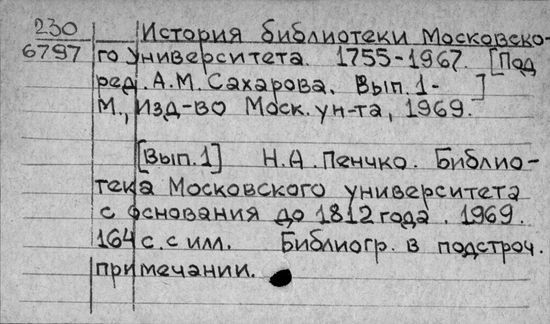 230
6797
История библиотеки Московско-
го университета. 1755-1967. [Под
ред. А.М. Сахарова. Вып. 1-  ]
М., Изд-во Моск. ун-та, 1969.
[Вып. 1] Н.А. Пенчко. Библио-
тека Московского университета
с основания до 1812 года. 1969.
164 с. с илл. Библиогр. в подстроч.
примечании.